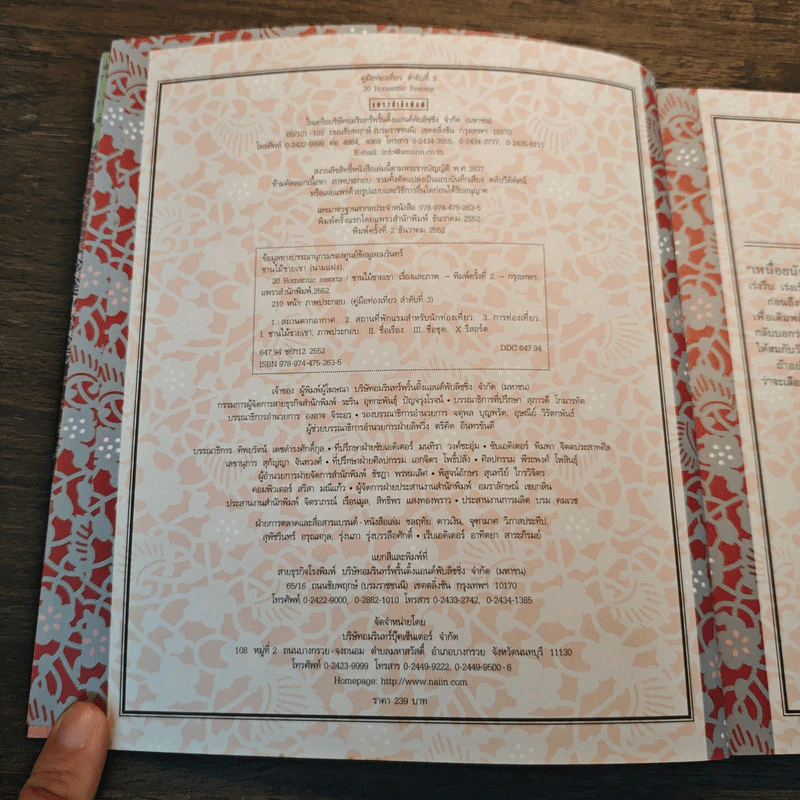 คู่มือท่องเที่ยว ลำดับที่ 3
20 Romantic Resorts
แพรวสำนักพิมพ์
ในเครือบริษัทอมรินทร์พริ้นติ้งแอนด์พับลิชชิ่ง จำกัด (มหาชน)
65/101-103 ถนนชัยพฤกษ์ (บรมราชชนนี) เขตตลิ่งชัน กรุงเทพฯ 10170
โทรศัพท์ 0-2422-9999 ต่อ 4964, 4969 โทรสาร 0-2434-3555, 0-2434-3777, 0-2435-5111
E-mail: info@amarin.co.th
สงวนลิขสิทธิ์หนังสือเล่มนี้ตามพระราชบัญญัติ พ.ศ. 2537
ห้ามคัดลอกเนื้อหา ภาพประกอบ รวมทั้งดัดแปลงเป็นแถบบันทึกเสียง ตลับวีดิทัศน์
หรือเผยแพร่ด้วยรูปแบบและวิธีการอื่นใดก่อนได้รับอนุญาต
เลขมาตรฐานสากลประจำหนังสือ 978-974-475-263-5
พิมพ์ครั้งแรกโดยแพรวสำนักพิมพ์ ธันวาคม 2552
พิมพ์ครั้งที่ 2 ธันวาคม 2552
ข้อมูลทางบรรณานุกรมของศูนย์ข้อมูลอมรินทร์
ชานไม้ชายเขา (นามแฝง).
20 Romantic resorts / ชานไม้ชายเขา: เรื่องและภาพ. – พิมพ์ครั้งที่ 2. – กรุงเทพฯ:
แพรวสำนักพิมพ์,2552.
210 หน้า: ภาพประกอบ. (คู่มือท่องเที่ยว ลำดับที่ 3)
1. สถานตากอากาศ. 2. สถานที่พักแรมสำหรับนักท่องเที่ยว. 3. การท่องเที่ยว.
I. ชานไม้ชายเขา, ภาพประกอบ. II. ชื่อเรื่อง. III. ชื่อชุด. X รีสอร์ต.
647.94 ช612 2552 DDC 647.94
ISBN 978-974-475-263-5
เจ้าของ ผู้พิมพ์ผู้โฆษณา บริษัทอมรินทร์พริ้นติ้งแอนด์พับลิชชิ่ง จำกัด (มหาชน)
กรรมการผู้จัดการสายธุรกิจสำนักพิมพ์ ระริน อุทกะพันธุ์ ปัญจรุ่งโรจน์ • บรรณาธิการที่ปรึกษา สุภาวดี โกมารทัต
บรรณาธิการอำนวยการ องอาจ จิระอร • รองบรรณาธิการอำนวยการ จตุพล บุญพรัด, อุษณีย์ วิรัตกพันธ์
ผู้ช่วยบรรณาธิการอำนวยการฝ่ายลิฟวิ่ง ตรีคิด อินทรขันตี
บรรณาธิการ ทิพยรัตน์ เดชดำรงศักดิ์กุล • ที่ปรึกษาฝ่ายซับเอดิเตอร์ มนทิรา วงศ์ชะอุ่ม • ซับเอดิเตอร์ พิมพา จิตตประสาทศีล
เลขานุการ สุกัญญา จันทวงศ์ • ที่ปรึกษาฝ่ายศิลปกรรม เอกจิตร โพธิ์ปลั่ง • ศิลปกรรม พีระพงศ์ โพสินธุ์
ผู้อำนวยการฝ่ายจัดการสำนักพิมพ์ ชัชฎา พรหมเลิศ • พิสูจน์อักษร สุนทรีย์ ไกรวิจิตร
คอมพิวเตอร์ สริสา มณีแก้ว • ผู้จัดการฝ่ายประสานงานสำนักพิมพ์ อมราลักษณ์ เชยกลิ่น
ประสานงานสำนักพิมพ์ จิตราภรณ์ เรือนมูล, สิทธิพร แสงทองพราว • ประสานงานการผลิต บรม คมเวช
ฝ่ายการตลาดและสื่อสารแบรนด์-หนังสือเล่ม ชลฤทัย ดาวเงิน, จุฑามาศ วิภาสประทีป,
สุพัชรินทร์ อรุณสกุล, รุ่งนภา รุ่งบรรลือศักดิ์ • เว็บเอดิเตอร์ อาทิตยา สาระภิรมย์
แยกสีและพิมพ์ที่
สายธุรกิจโรงพิมพ์ บริษัทอมรินทร์พริ้นติ้งแอนด์พับลิชชิ่ง จำกัด (มหาชน)
65/16 ถนนชัยพฤกษ์ (บรมราชชนนี) เขตตลิ่งชัน กรุงเทพฯ 10170
โทรศัพท์ 0-2422-9000, 0-2882-1010 โทรสาร 0-2433-2742, 0-2434-1385
จัดจำหน่ายโดย
บริษัทอมรินทร์บุ๊คเซ็นเตอร์ จำกัด
108 หมู่ที่ 2 ถนนบางกรวย-จงถนอม ตำบลมหาสวัสดิ์ อำเภอบางกรวย จังหวัดนนทบุรี 11130
โทรศัพท์ 0-2423-9999 โทรสาร 0-2449-9222, 0-2449-9500-6
Homepage: http://www.naiin.com
ราคา 239 บาท
"เหนื่อยนั
เร่งรีบ เร่งเร้
ก่อนถึง
เพื่อเติมพลั
กลับบอกว่
ให้สมกับวั
ถ้าอย่
ว่าจะเลือ